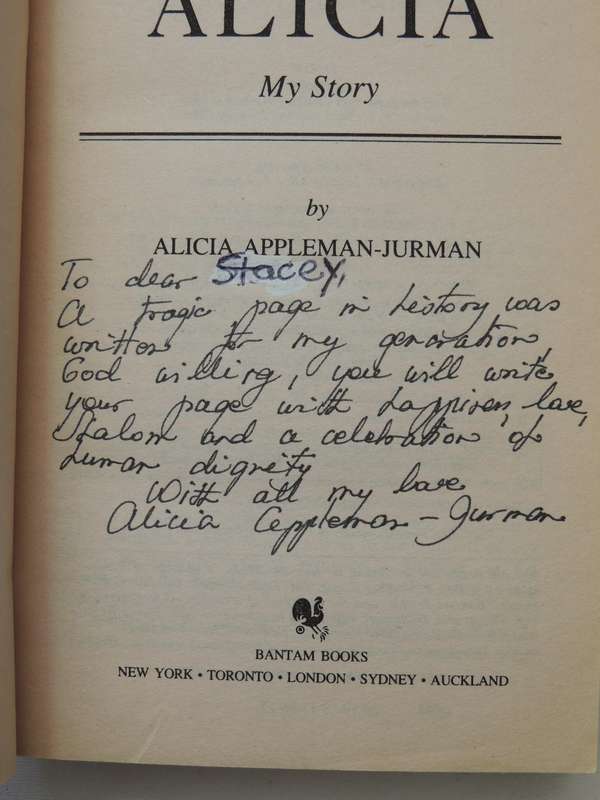 ALICIA
My Story
by
ALICIA APPLEMAN-JURMAN
To dear Stacey,
A tragic page in history was
written for my generation,
God willing, you will write
your page with happiness, love,
Shalom and a celebration of
human dignity
With all my love
Alicia Appleman-Jurman
BANTAM BOOKS
NEW YORK • TORONTO • LONDON • SYDNEY • AUCKLAND